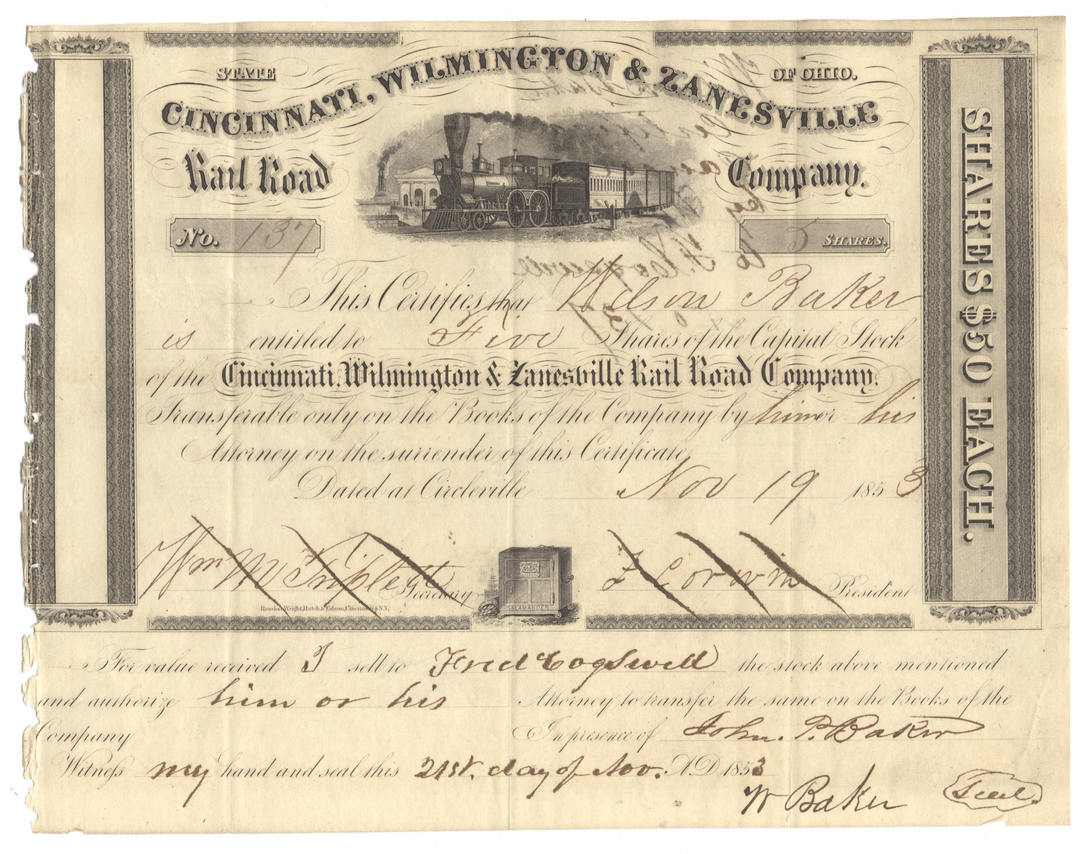 STATE OF OHIO.
CINCINNATI, WILMINGTON & ZANESVILLE
Rail Road Company.
No. 137 5 SHARES.
This Certifies that Wilson Baker
is entitled to Five Shares of the Capital Stock
of the Cincinnati, Wilmington & Zanesville Rail Road Company.
Transferable only on the Books of the Company by him or his
Attorney on the surrender of this Certificate
Dated at Circleville Nov 19 1853
Wm M Triplett Secretary
SALAMANDER
F Corwin President
Rawdon, Wright, Hatch & Edson, Cincinnati & N.Y.
SHARES $50 EACH.
For value received I sell to Fred Cogswell the stock above mentioned
and authorize him or his Attorney to transfer the same on the Books of the
Company In presence of John. P. Baker
Witness my hand and seal this 21st. day of Nov. A.D. 1853
W Baker Seal.